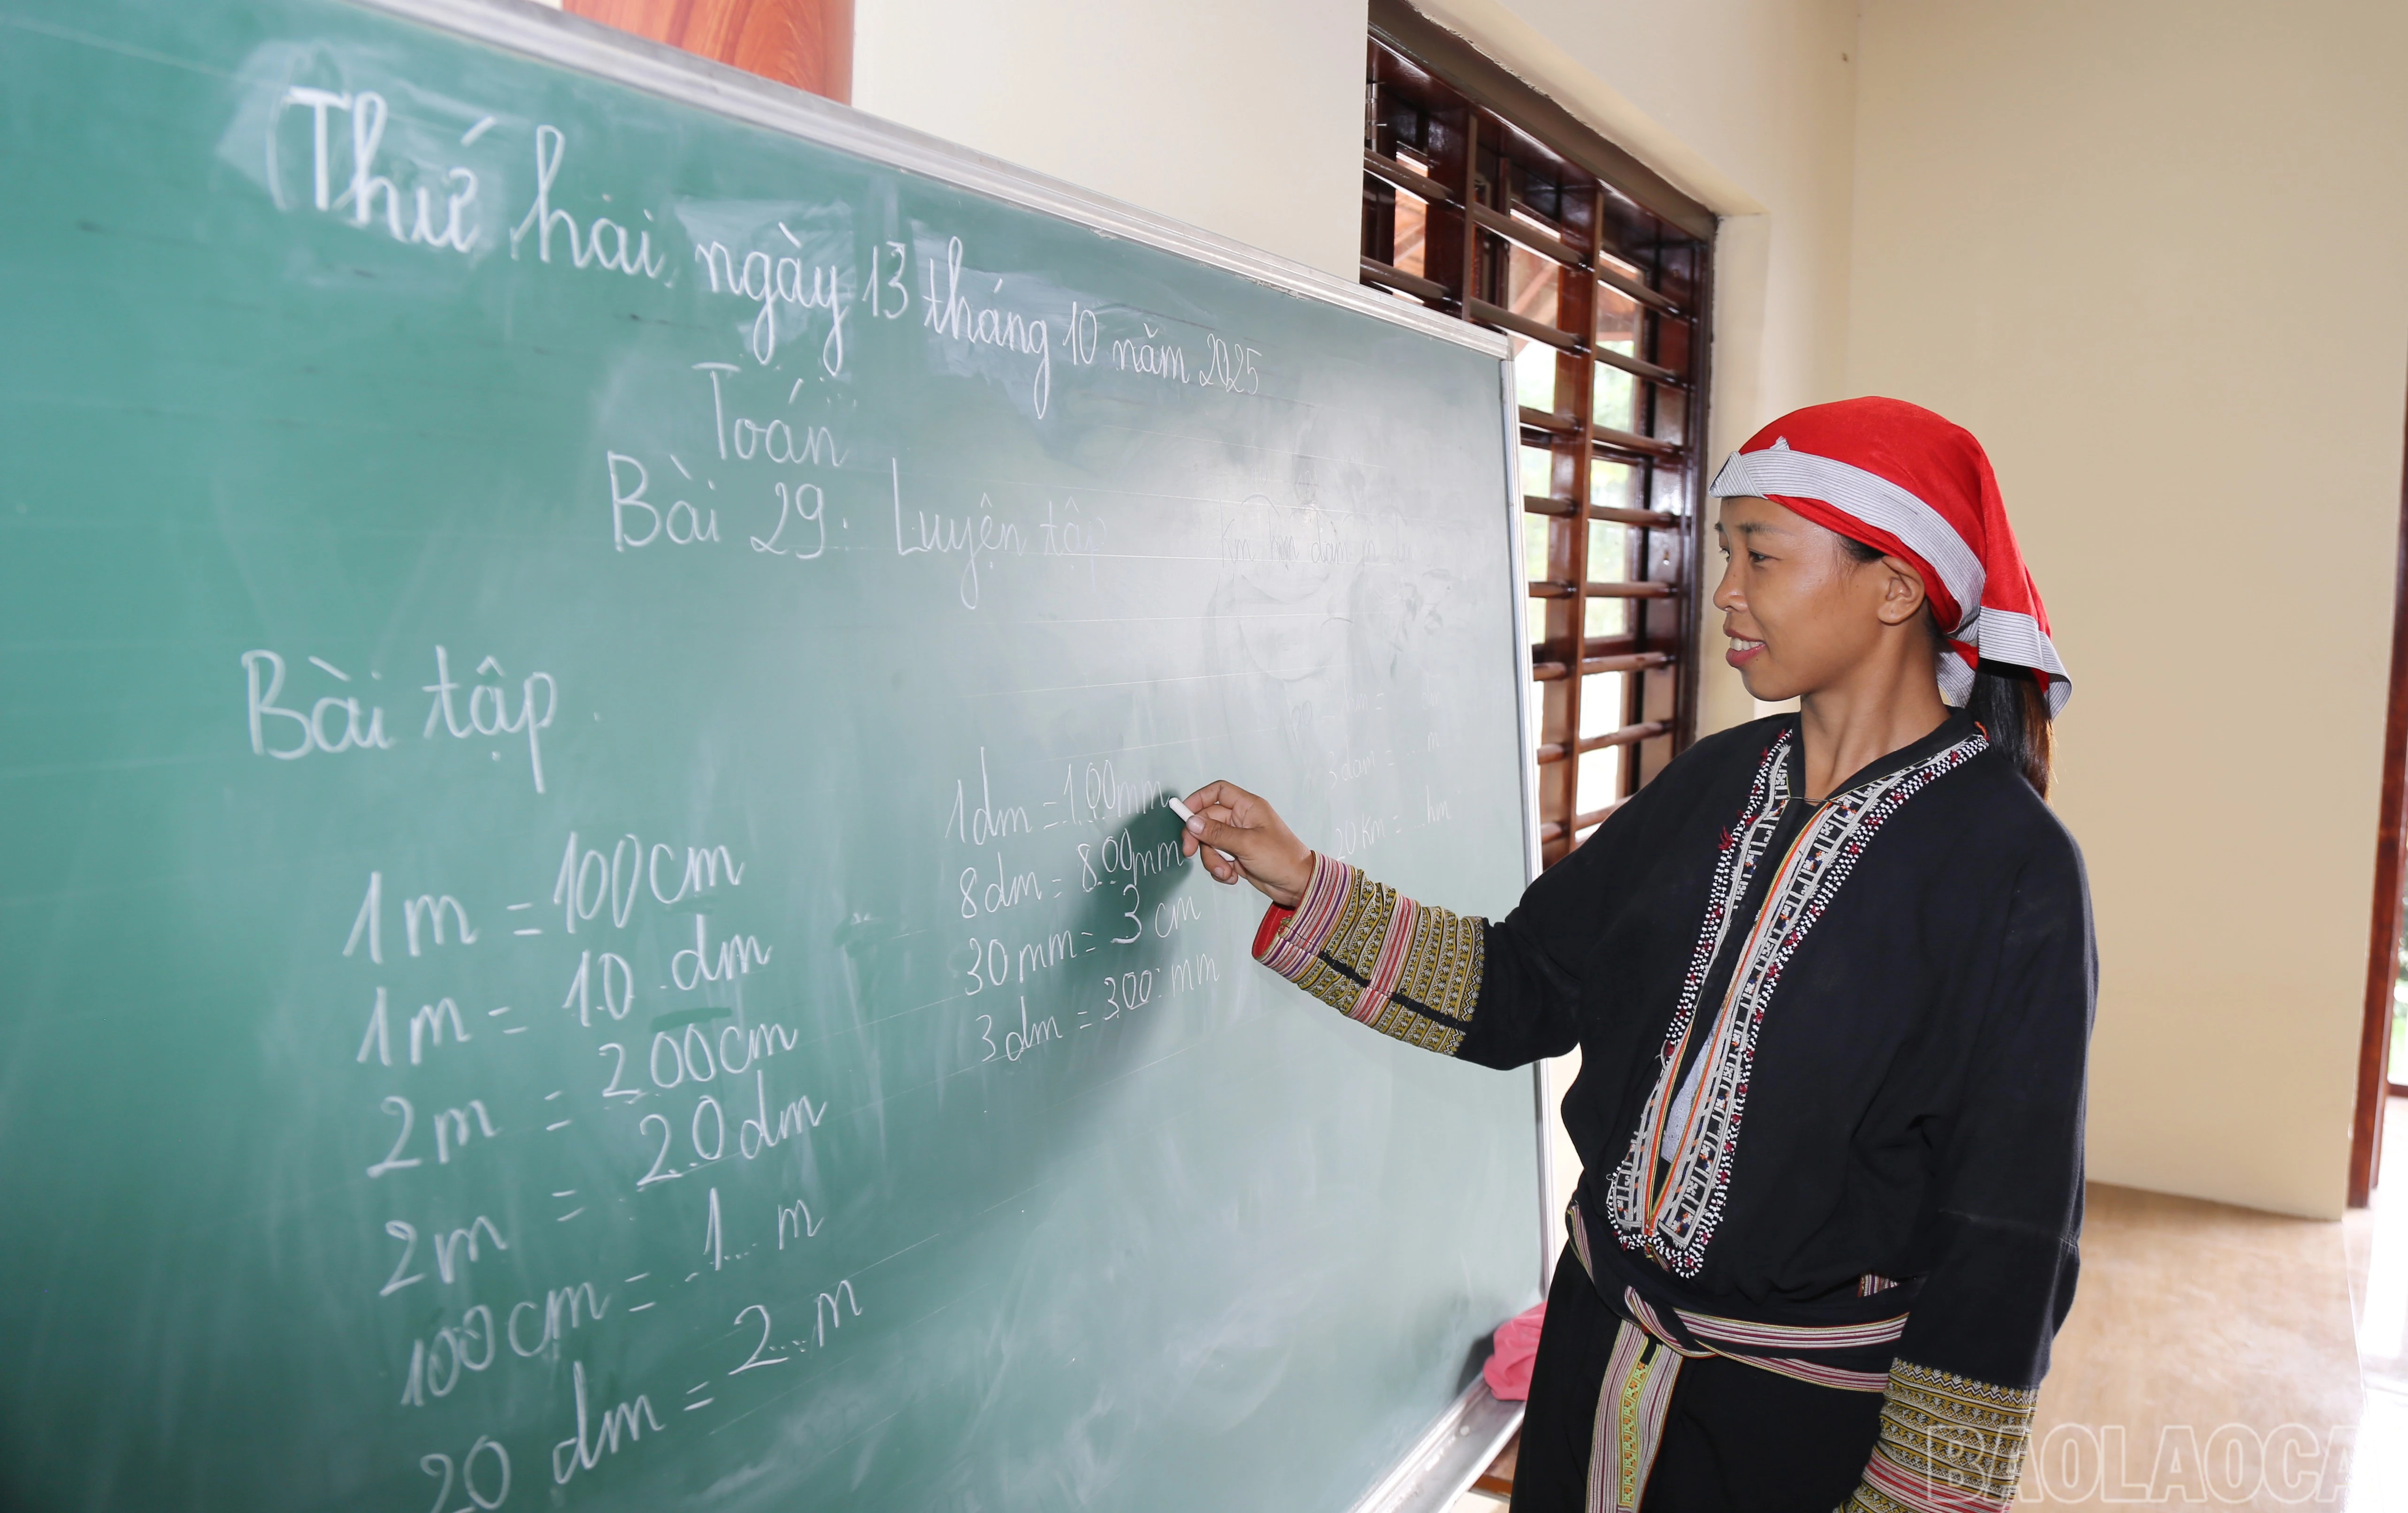 Thứ hai, ngày 13 tháng 10 năm 2025
Toán
Bài 29. Luyện tập
Km hm dam m
Bài tập
1m = 100cm
1m = 10 dm
2m = 200cm
2m = 20 dm
100cm = 1... m
20 dm = 2... m
1dm = 100mm
8dm = 800mm
30mm = 3 cm
3dm = 300 mm
3 dam = ... m
20 Km = ... hm
BAOLAOCA